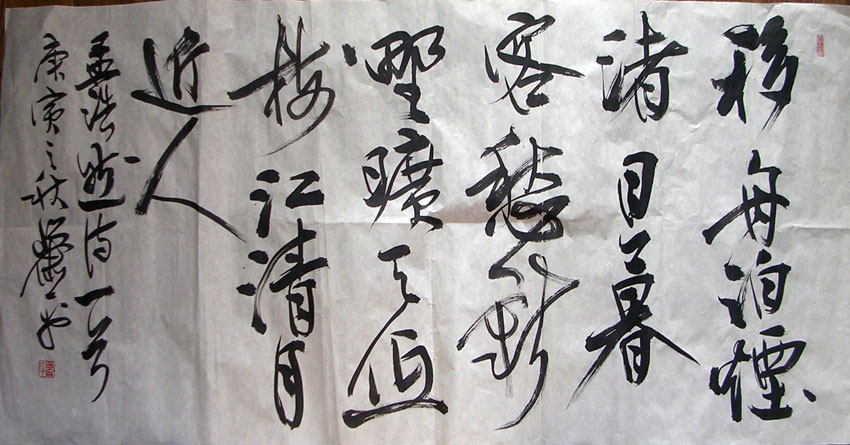 移舟泊煙
渚日暮
客愁新
野曠天低
樹江清月
近人
孟浩然詩一首
庚寅之秋